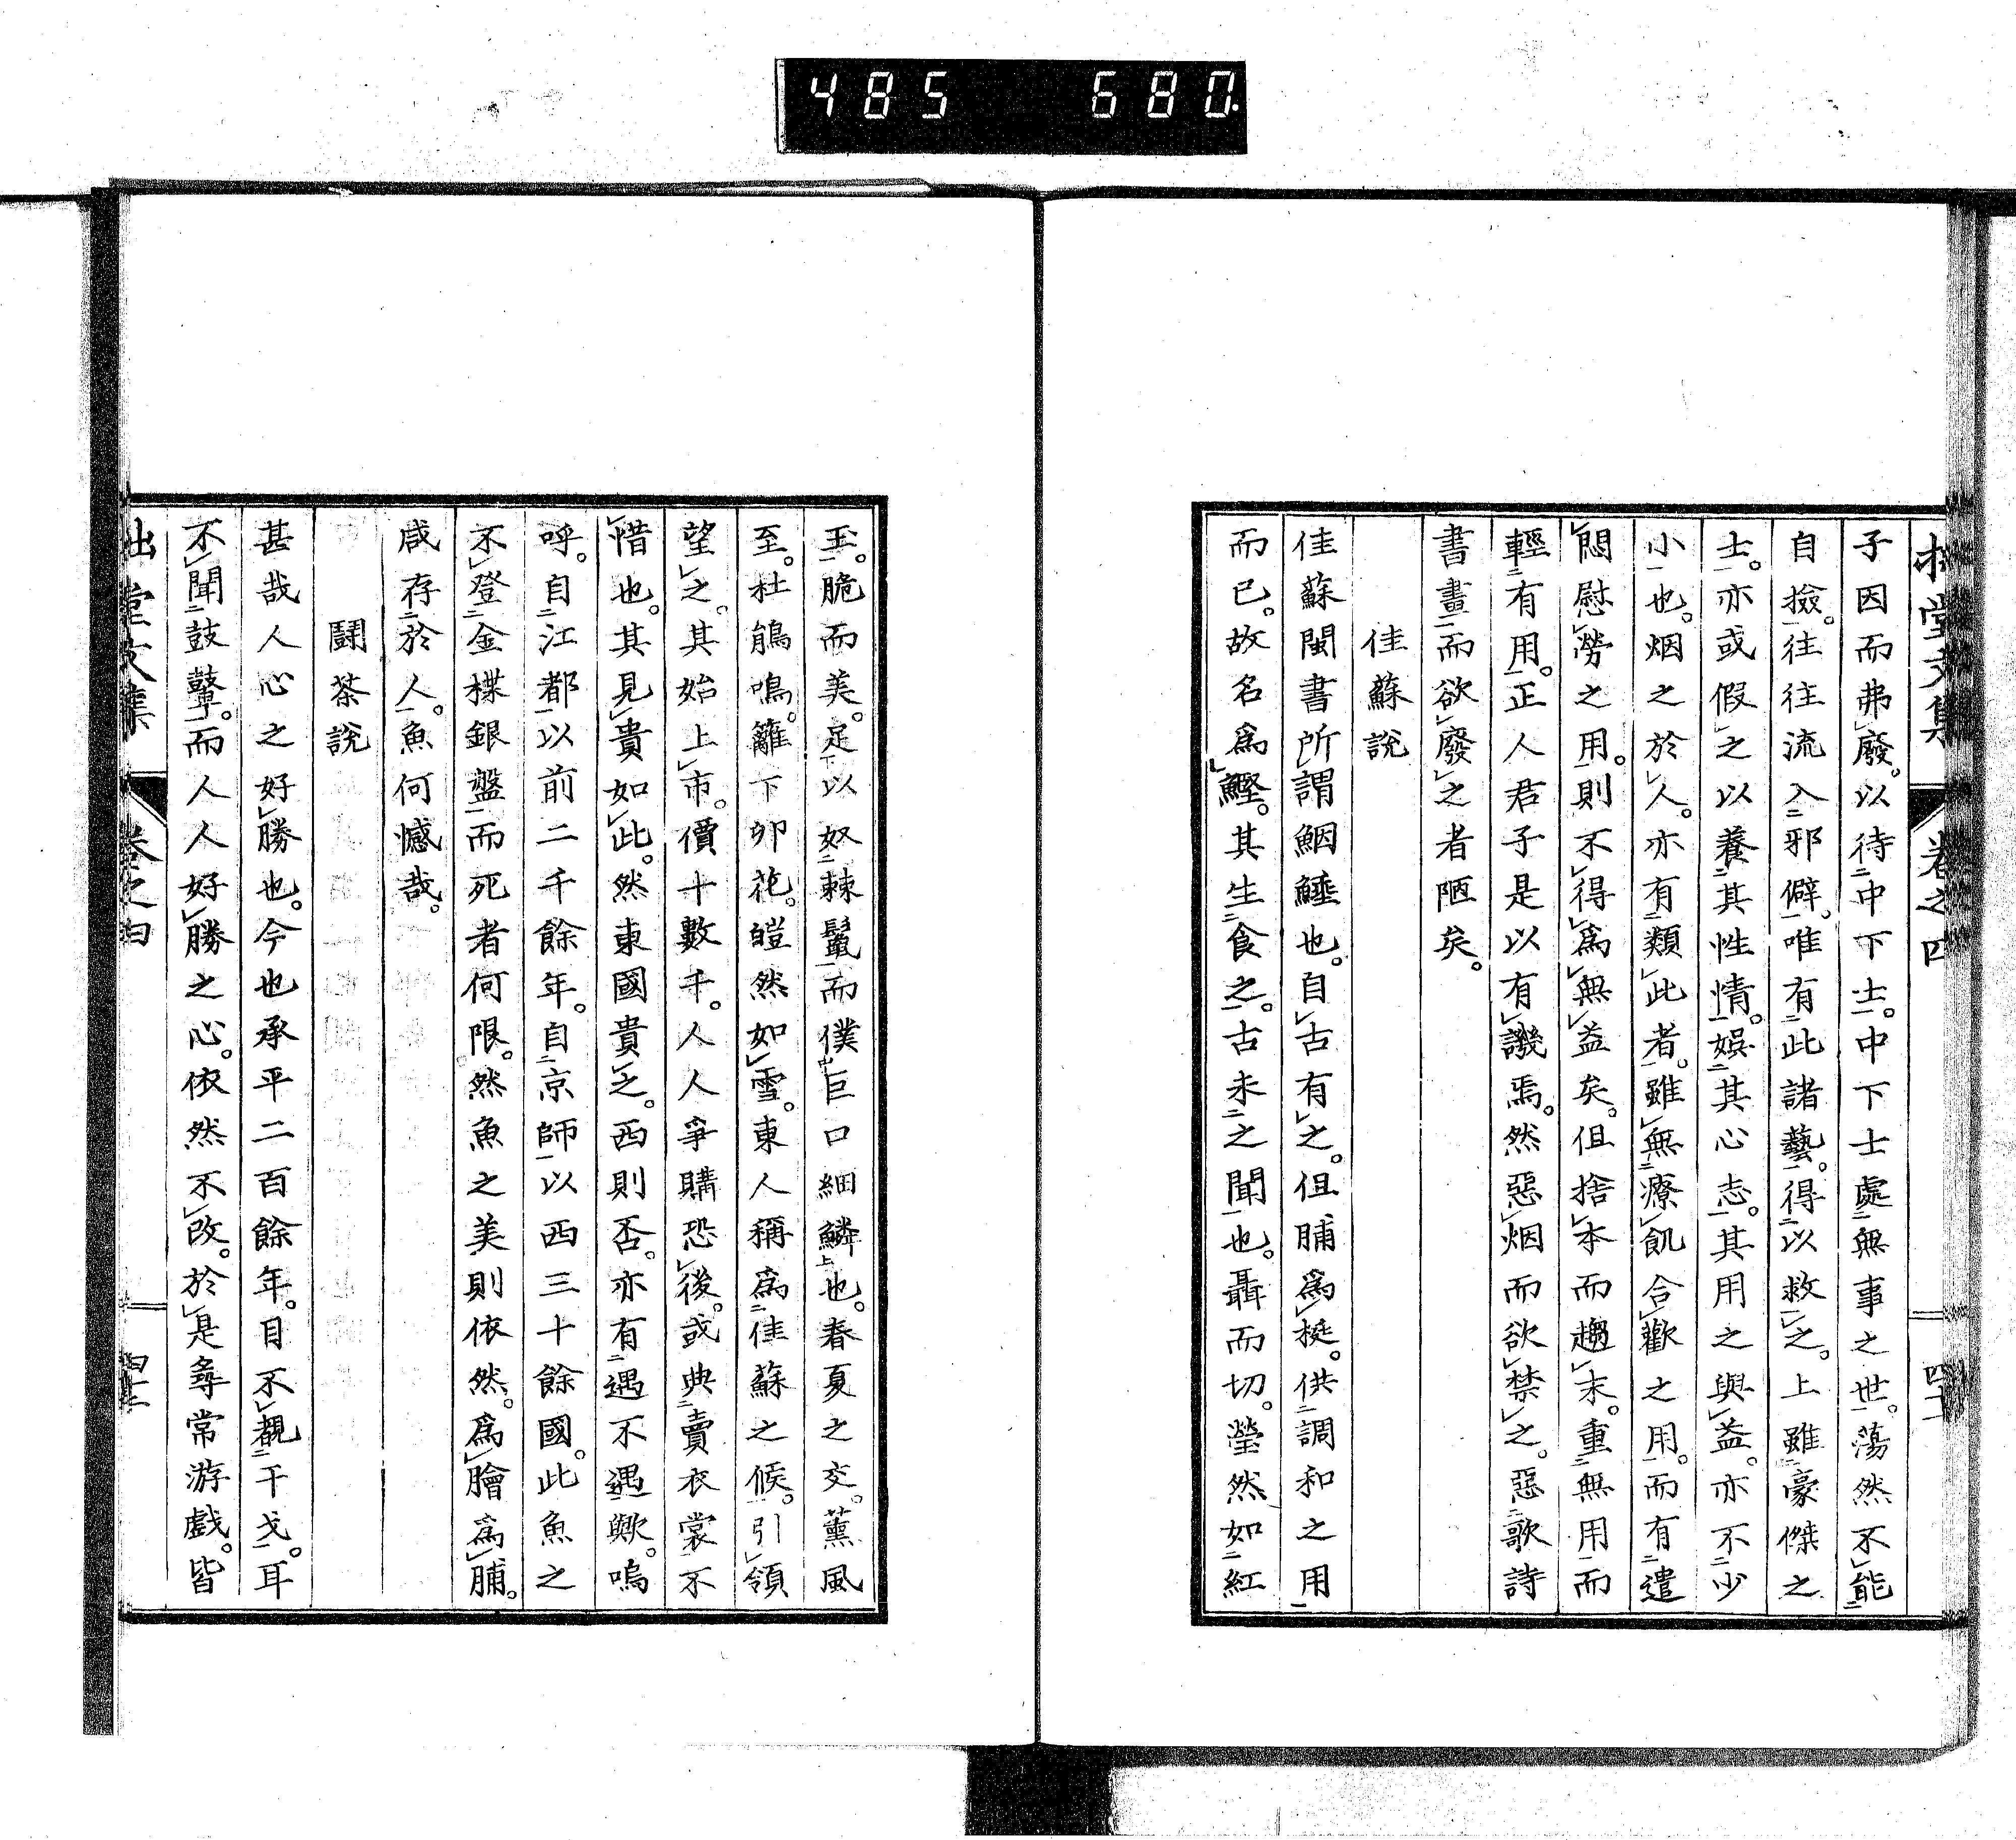 485 680.
拙堂文集 卷之四 四十一
子因而弗廢。以待中下士。中下士處無事之世。蕩然不能
自撿。往往流入邪僻。唯有此諸藝。得以救之。上雖豪傑之
士。亦或假之以養其性情。娯其心志。其用之與益。亦不少
小也。烟之於人。亦有類此者。雖無療飢合歡之用。而有遣
悶慰勞之用。則不得爲無益矣。但捨本而趨末。重無用而
輕有用。正人君子是以有譏焉。然惡烟而欲禁之。惡歌詩
書畫而欲廢之者陋矣。
佳蘇說
佳蘇閩書所謂鮂鯅也。自古有之。但脯爲梃。供調和之用
而已。故名爲鰹。其生食之。古未之聞也。聶而切。瑩然如紅
玉。脆而美。足以奴棘鬣而僕巨口細鱗也。春夏之交。薰風
至。杜鵑鳴。籬下卯花。皚然如雪。東人稱爲佳蘇之候。引領
望之。其始上市。價十數千。人人爭購恐後。或典賣衣裳不
惜也。其見貴如此。然東國貴之。西則否。亦有遇不遇歟。嗚
呼。自江都以前二千餘年。自京師以西三十餘國。此魚之
不登金楪銀盤而死者何限。然魚之美則依然。爲膾爲脯。
咸存於人。魚何憾哉。
鬪茶說
甚哉人心之好勝也。今也承平二百餘年。目不覩干戈。耳
不聞鼓鼙。而人人好勝之心。依然不改。於是尋常游戲。皆
拙堂文集 卷之四